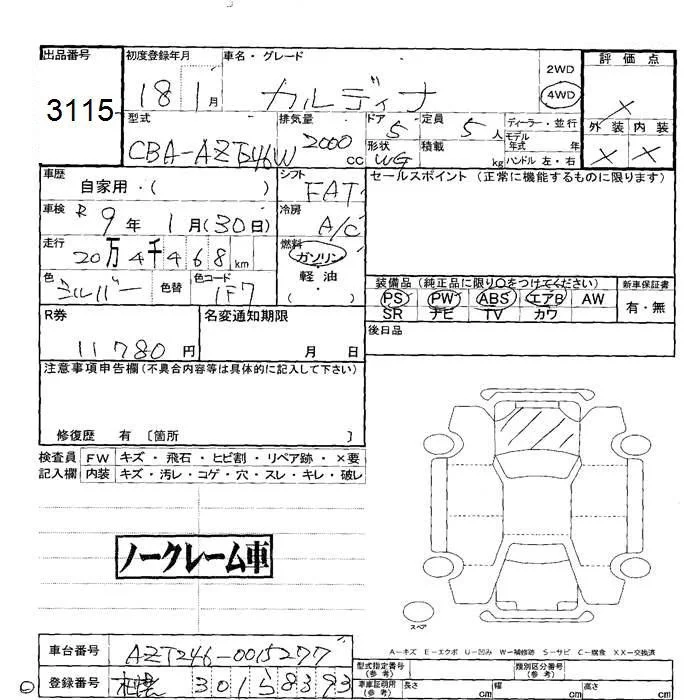 出品番号 初度登録年月 車名・グレード 評価点
3115 18 1月 カルディナ 2WD 4WD ×
型式 排気量 ドア 定員 ディーラー・並行 外装 内装
CBA-AZT246W 2000cc 5 5人 モデル年式 年 × ×
形状 WG 積載 kg ハンドル 左・右
車歴 自家用・( ) シフト FAT セールスポイント (正常に機能するものに限ります)
車検 R 9年 1月(30日) 冷房 A/C
走行 20万4千468km 燃料 ガソリン
色 シルバー 色替 色コード 1F7 軽油
(・)
装備品(純正品に限り○をつけてください) 新車保証書
PS PW ABS エアB AW 有・無
SR ナビ TV カワ
R券 名変通知期限 後日品
11780円 月 日
注意事項申告欄(不具合内容等は具体的に記入して下さい)
修復歴 有 〔箇所 〕
検査員 FW キズ・飛石・ヒビ割・リペア跡・×要
記入欄 内装 キズ・汚レ・コゲ・穴・スレ・キレ・破レ
ノークレーム車
スペア
A-キズ E-エクボ U-凹み W-補修跡 S-サビ C-腐食 XX-交換済
車台番号 AZT246-0015277 型式指定番号(参考) 類別区分番号(参考)
登録番号 札幌 301 5 8393 車庫証明用(参考) 長さ cm 幅 cm 高さ cm